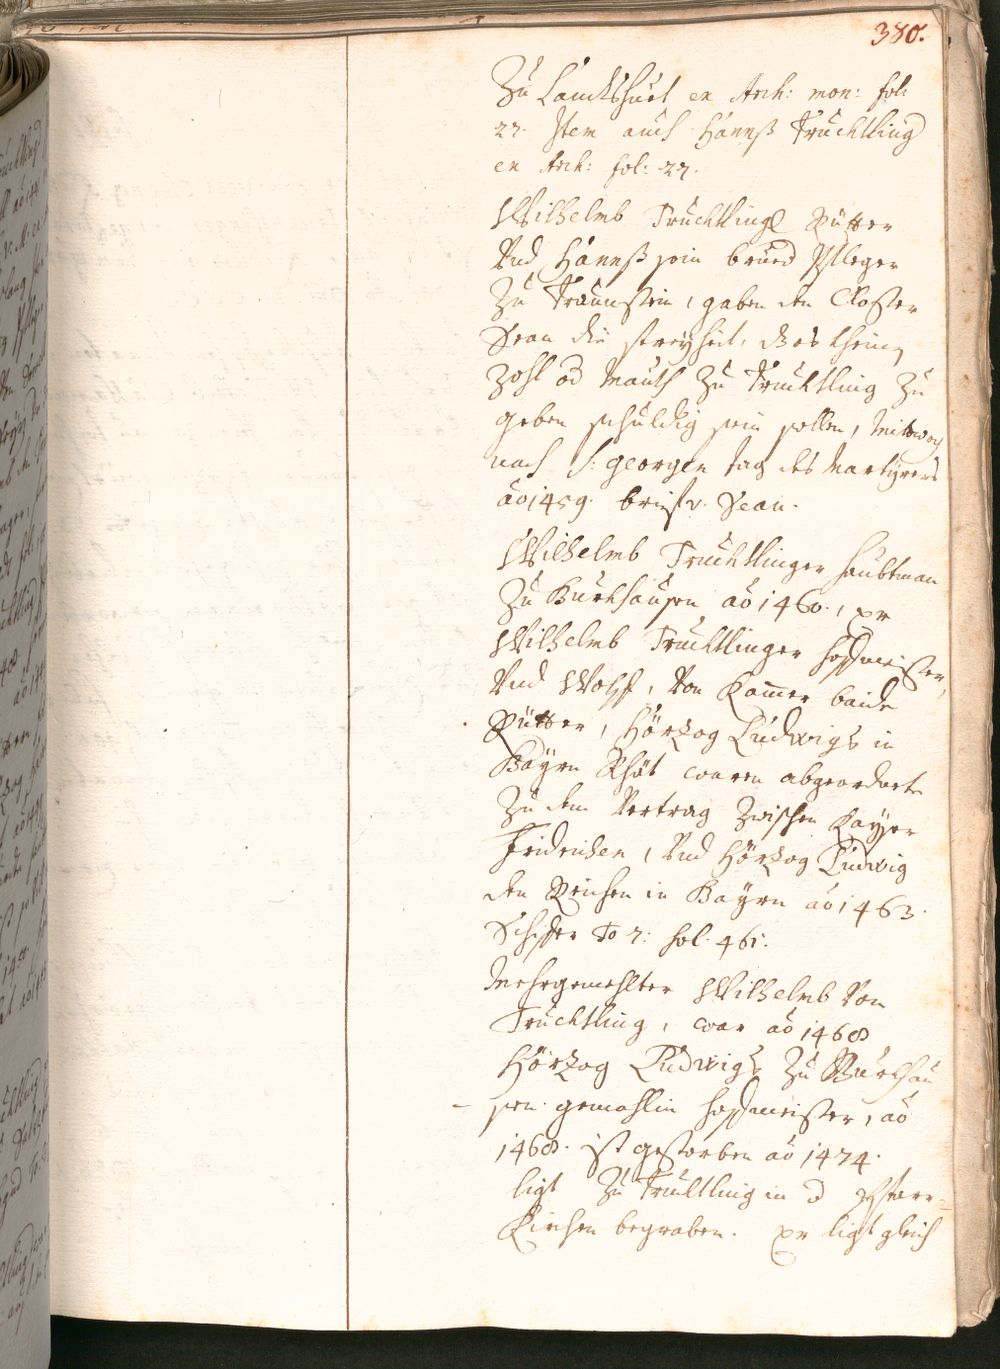 380.
Zu Landtshuet ex Arch: mon: fol:
27. Item auch Hannß Truchtling
ex Arch: fol: 27.
Wilhelmb Truchtling Rütter
Vnd Hannß sein bruder Pfleger
Zu Traunstein, gaben den Closter
Seon die freyheit, das es khein
Zohl od Mauth Zu Truchtling Zu
geben schuldig sein sollen, Mitwoch
nach S: georgen tag des Martyrers
ao 1459. brieff v. Seon.
Wilhelmb Truchtlinger haubtman
Zu Burkhausen ao 1460., er
Wilhelmb Truchtlinger hoffmeister,
Vnd Wolff, Von Kamer baide
Rütter, Hörzog Ludwigs in
Bayrn Rhät waren abgeordnete
Zu dem Vertrag Zwischen Kayser
Fridrichen, Vnd Hörzog Ludwig
den Reichen in Bayrn ao 1463.
To 7: fol. 461.
Mehrgemelter Wilhelmb Von
Truchtling, war ao 1468
Hörzog Ludwigs Zu Burkhau
sen gemahlin hoffmeister, ao
1468. ist gestorben ao 1474.
ligt Zu Truchtling in d Pfarr-
Kirchen begraben. er ligt gleich